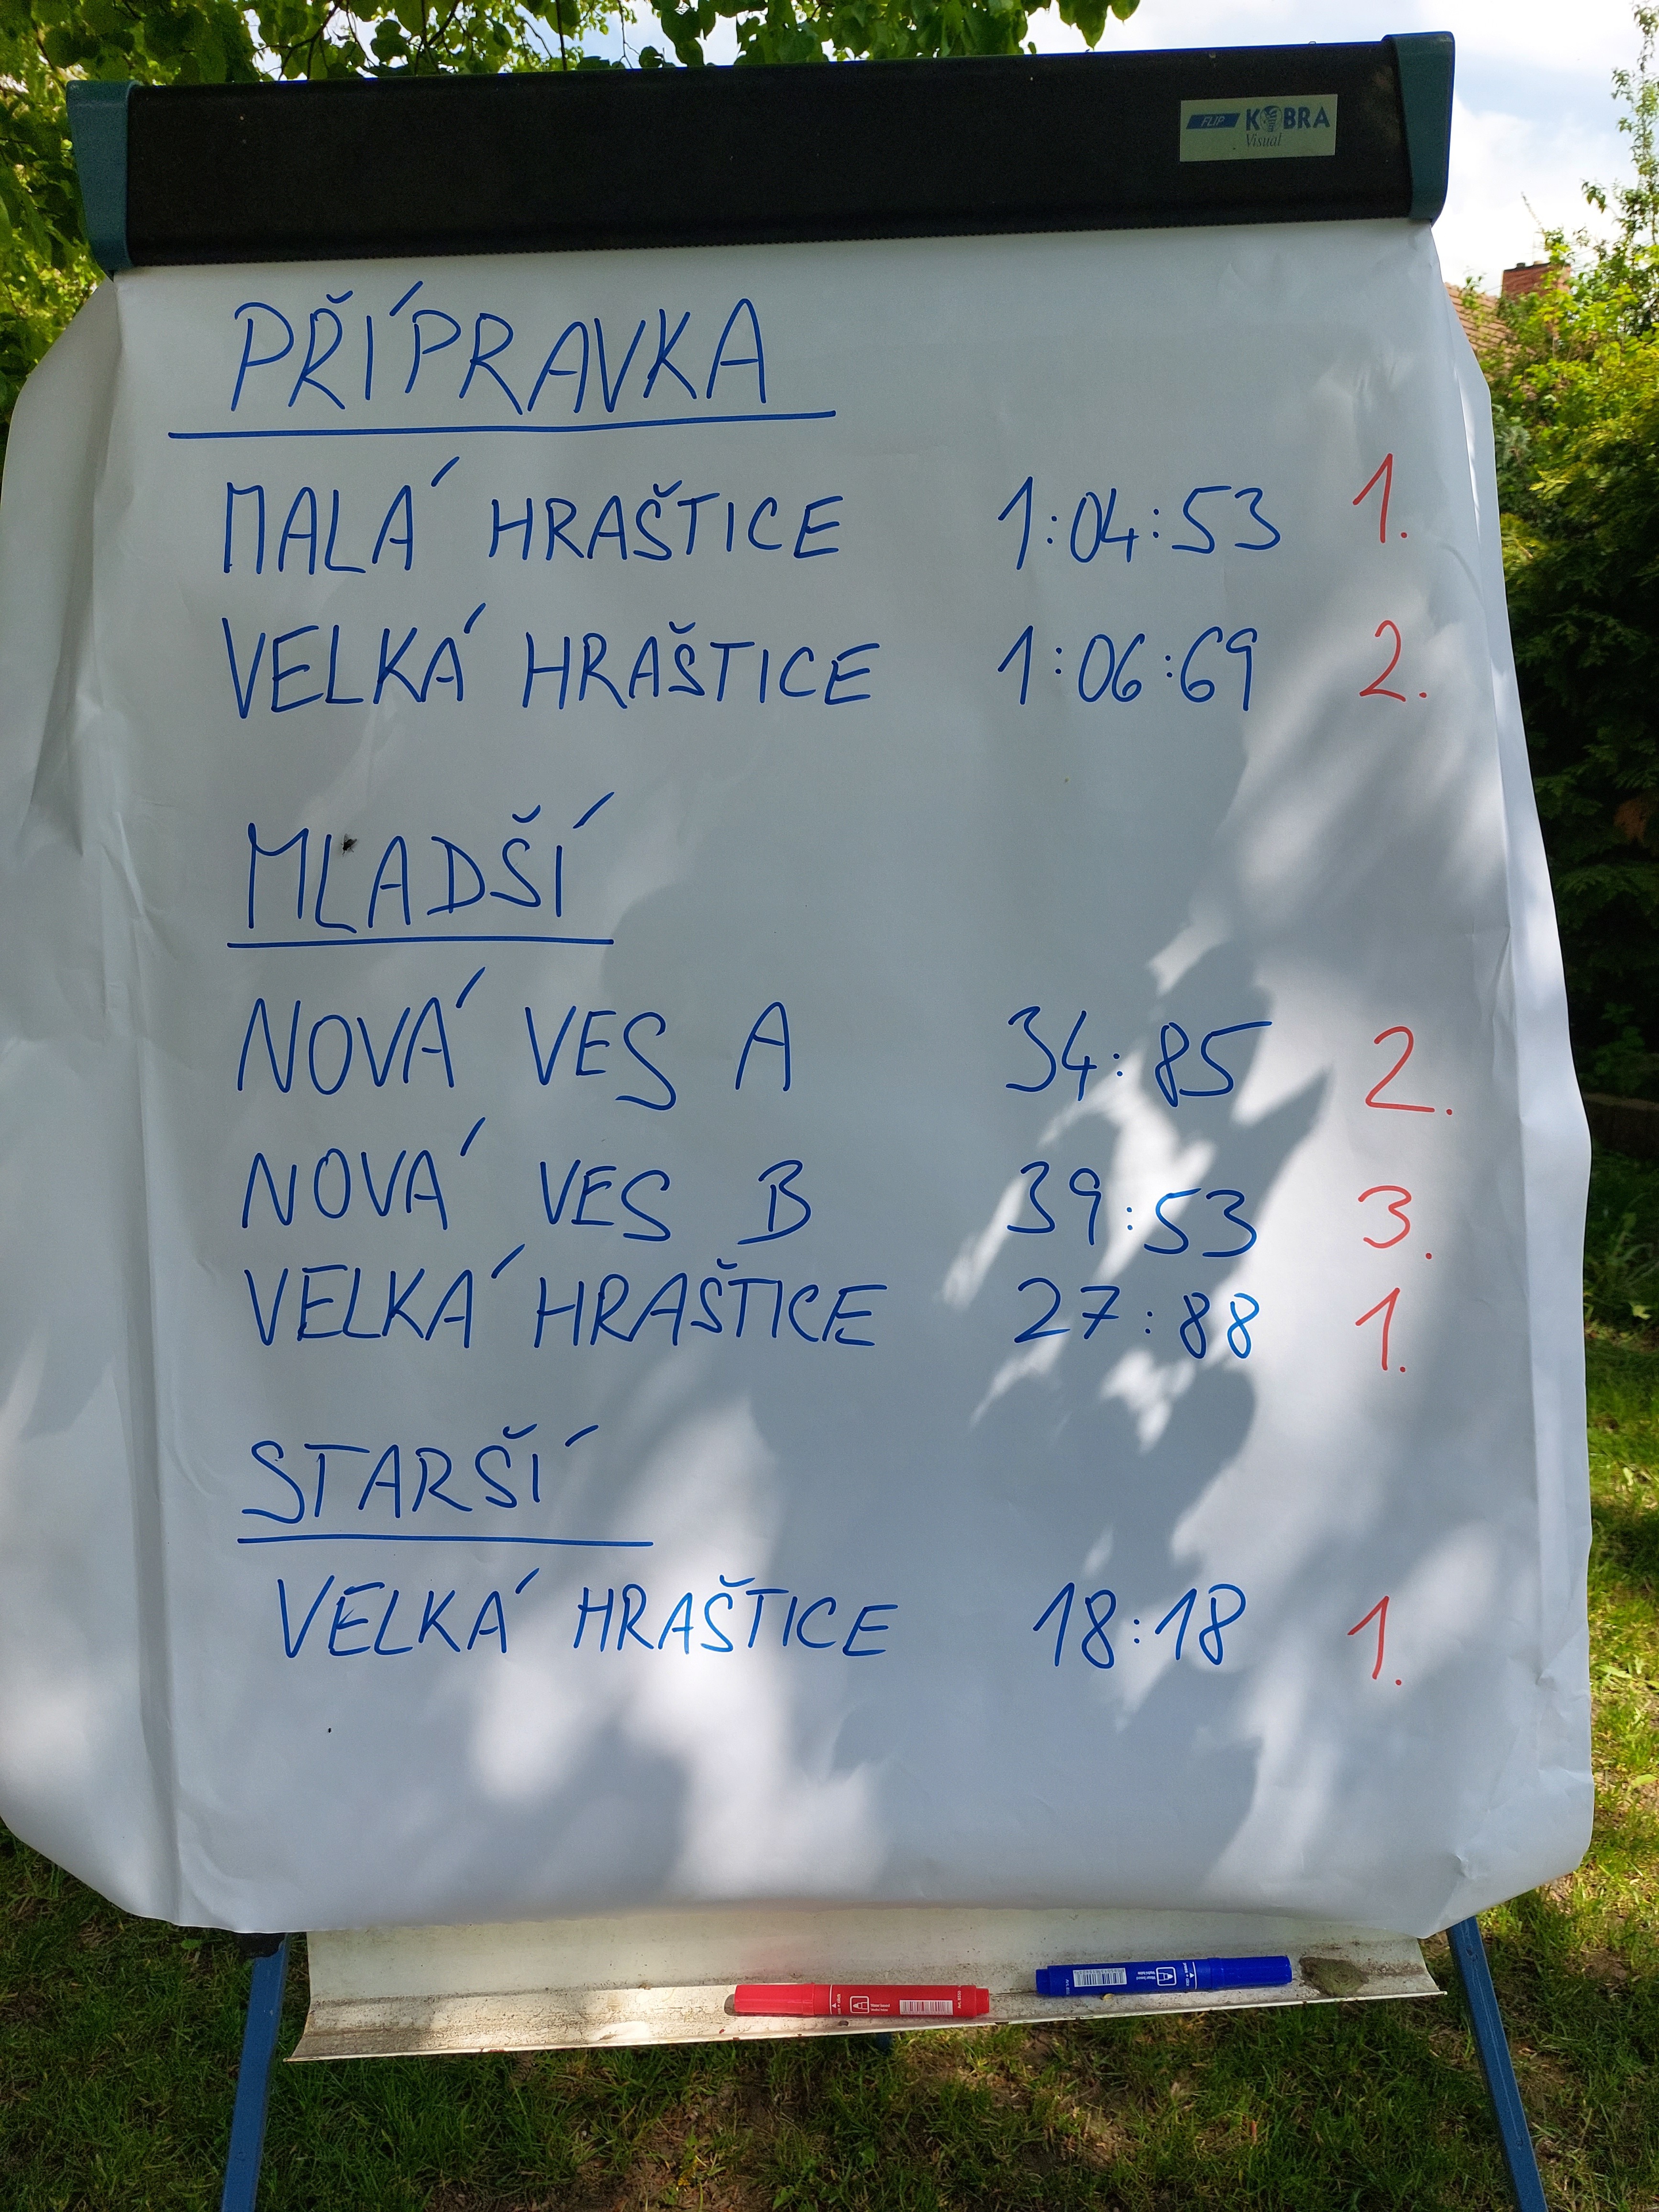 FLIP KOBRA
Visual
PŘÍPRAVKA
MALÁ HRAŠTICE 1:04:53 1.
VELKÁ HRAŠTICE 1:06:69 2.
MLADŠÍ
NOVÁ VES A 34:85 2.
NOVÁ VES B 39:53 3.
VELKÁ HRAŠTICE 27:88 1.
STARŠÍ
VELKÁ HRAŠTICE 18:18 1.